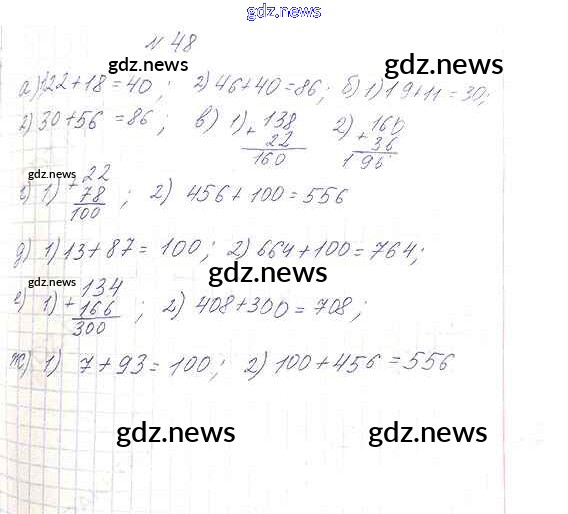 gdz.news
№ 48
gdz.news gdz.news
а) 1) 22+18=40; 2) 46+40=86; б) 1) 19+11=30;
2) 30+56=86; в) 1) + 138 22 160 2) + 160 36 196
gdz.news
г) 1) + 22 78 100; 2) 456+100=556
д) 1) 13+87=100; 2) 664+100=764;
gdz.news gdz.news
е) 1) + 134 166 300; 2) 408+300=708;
ж) 1) 7+93=100; 2) 100+456=556
gdz.news gdz.news